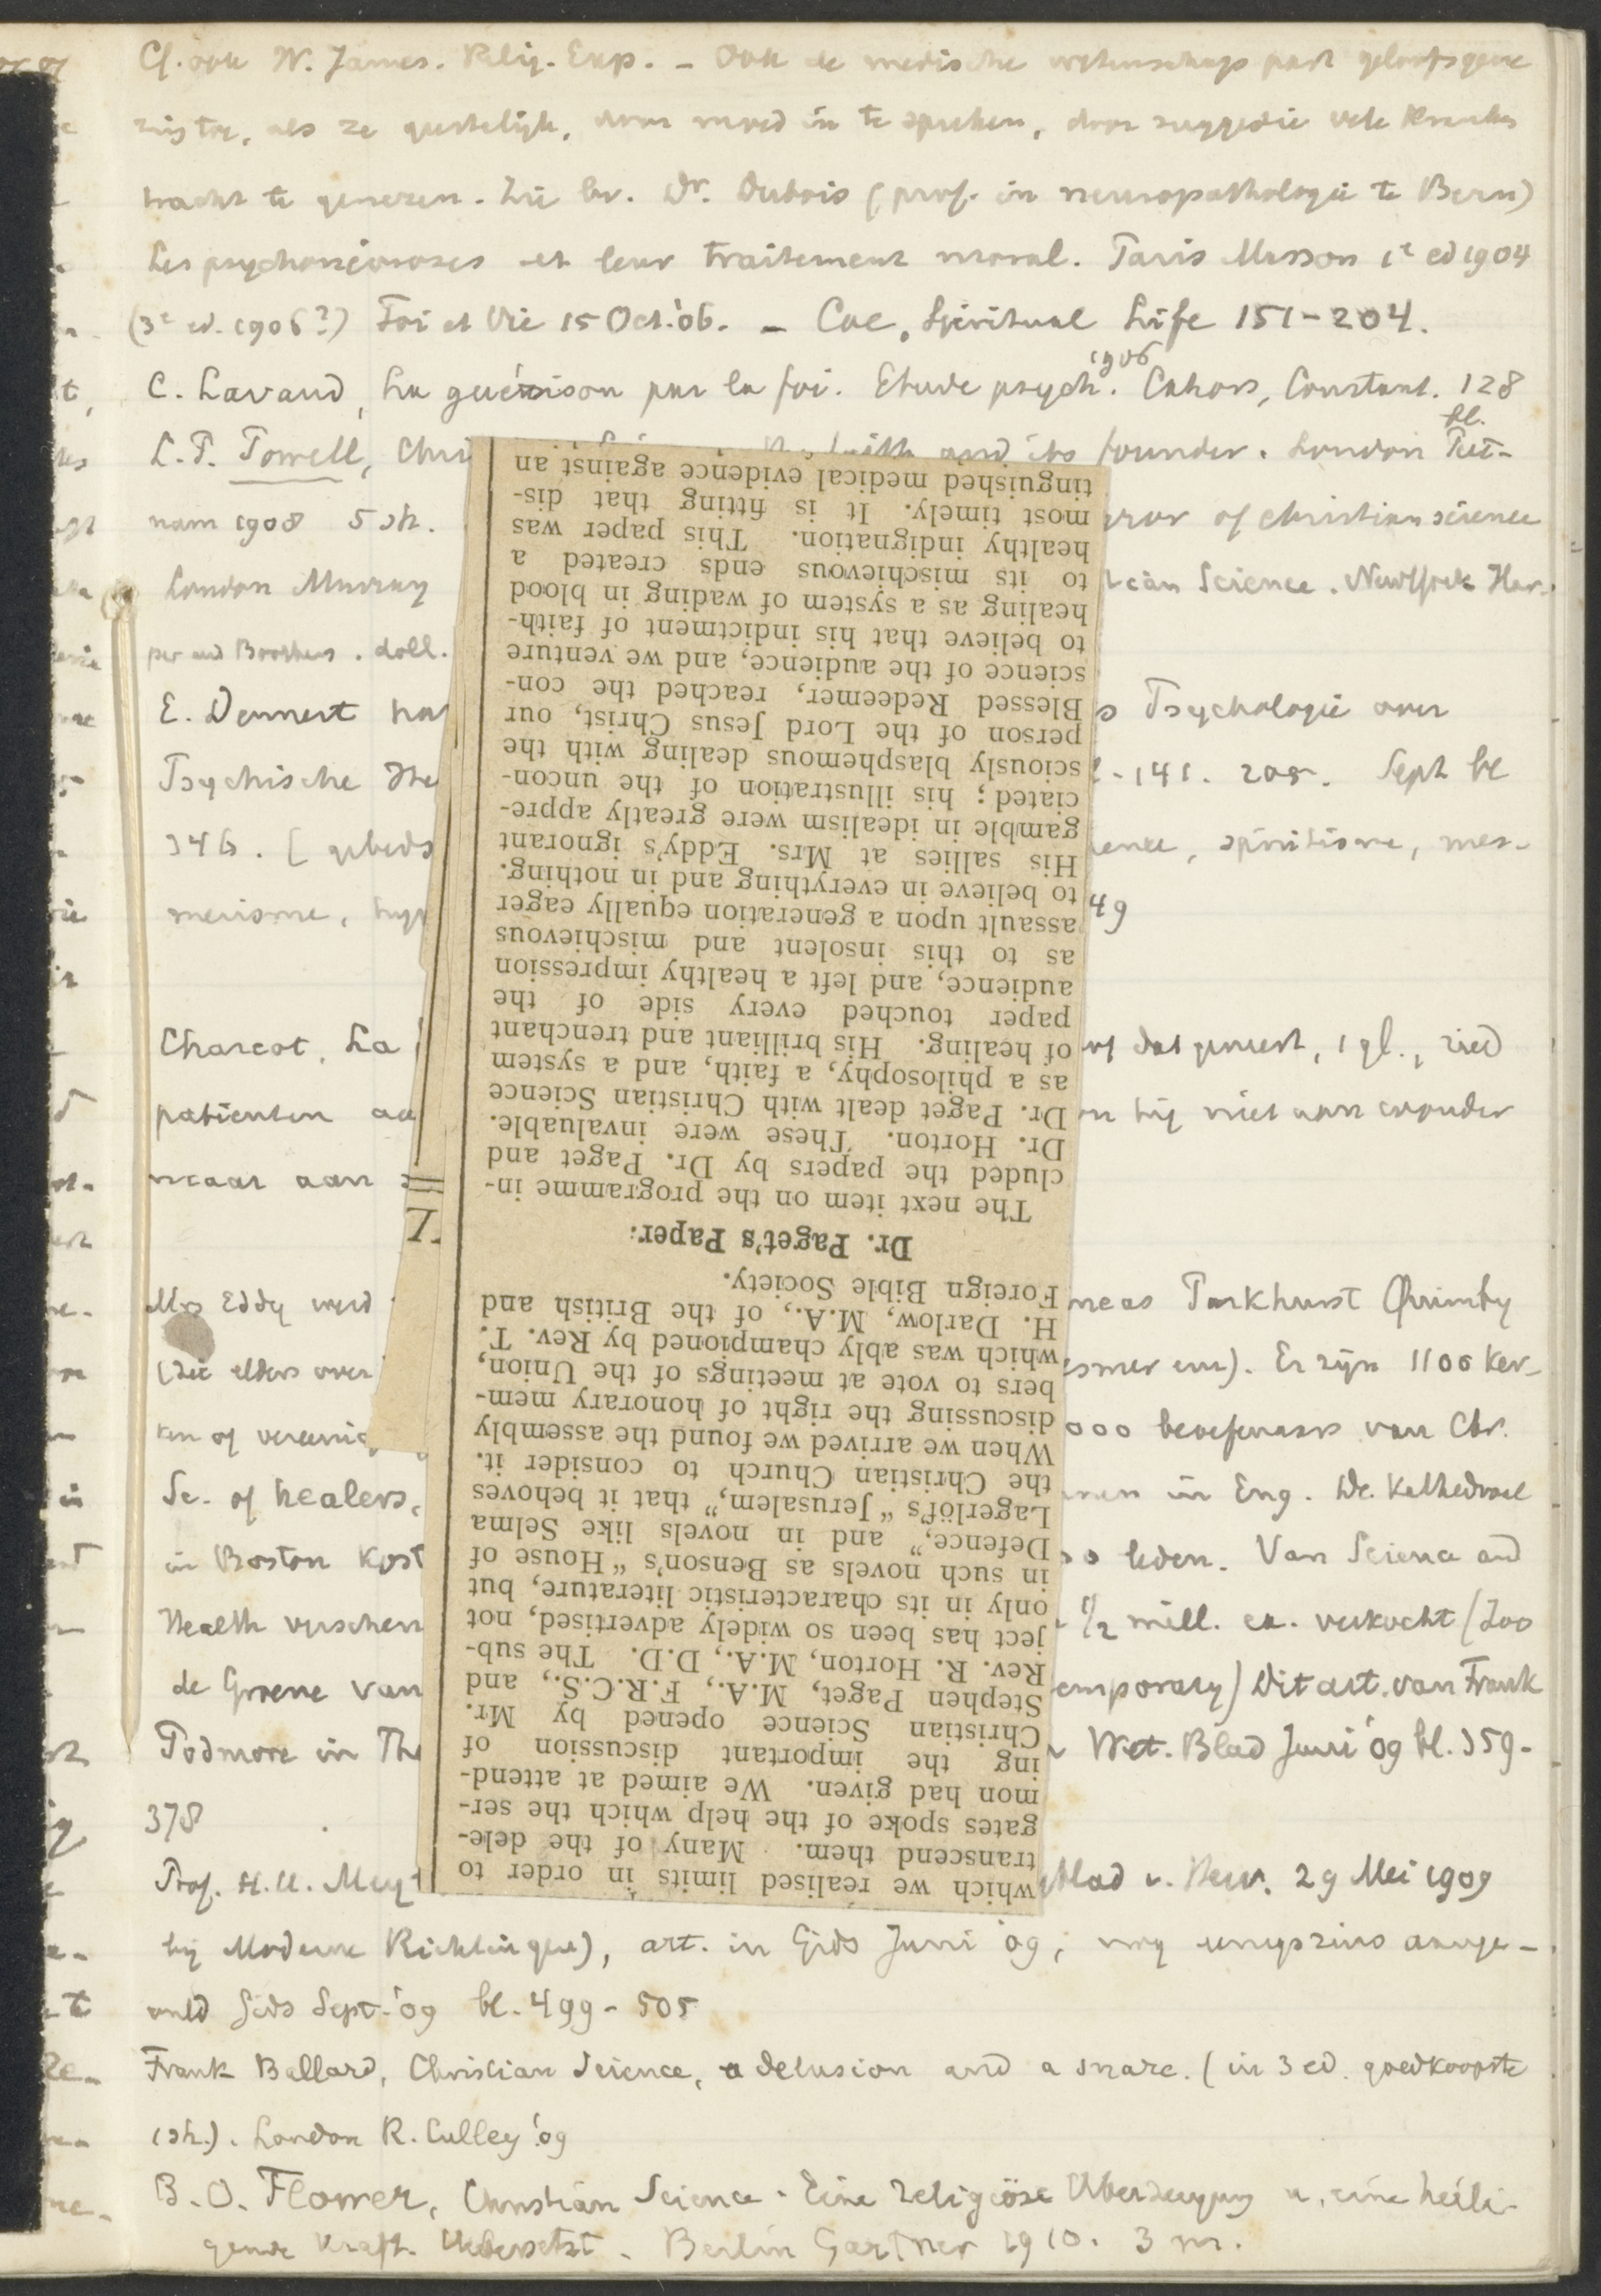 Cf. ook W. James. Relig. Exp. – Ook de medische wetenschap past geloofsgene
zing toe, als ze geestelijk, door moed in te spreken, door suggestie vele kranken
tracht te genezen. Zie bv. Dr. Dubois (prof. in neuropathologie te Bern)
Les psychonévroses et leur traitement moral. Paris Masson 1e ed 1904
(3e ed. 1906?) Foi et Vie 15 Oct. '06. – Coe, Spiritual Life 151-204.
C. Lavaud, La guérison par la foi. Etude psych. 1906 Cahors, Coustant. 128 bl.
L.P. Powell, Chri faith and its founder. London Put-
nam 1908 5 sh. rror of christian science
London Murray tian Science. NewYork Har-
per and Brothers. doll.
E. Dennert s Psychologie over
Psychische -141. 205. Sept bl
346. [ gebeds ence, spiritisme, mes-
merisme, hyp 49
Charcot, La dat geneest, 1 gl., zied
patienten aa hij niet aan wonder
maar aan
Mrs Eddy werd neas Parkhurst Quimby
(zie elders over esmer enz). Er zijn 1100 ker-
ken of vereenig 000 beoefenaars van Chr.
Sc. of healers, in Eng. De Kathedraal
in Boston kost leden. Van Science and
Health verscheen 1/2 mill. ex. verkocht (Zoo
de Groene van emporary) Dit art. van Frank
Podmore in The Wet. Blad Juni '09 bl. 359-
378
Prof. H.U. Mey blad v. New. 29 Mei 1909
bij Moderne Richting), art. in Gids Juni '09, nog eenigszins aange-
vuld Gids Sept. '09 bl. 499-505
Frank Ballard, Christian Science, a delusion and a snare. (in 3 ed. goedkoopste
1 sh.). London R. Culley '09
B.O. Flower, Christian Science. Eine religiöse Überzeugung u. eine heili-
gende Kraft. Uebersetzt. Berlin Gartner 1910. 3 m.
which we realised limits in order to
transcend them. Many of the dele-
gates spoke of the help which the ser-
mon had given. We aimed at attend-
ing the important discussion of
Christian Science opened by Mr.
Stephen Paget, M.A., F.R.C.S., and
Rev. R. Horton, M.A., D.D. The sub-
ject has been so widely advertised, not
only in its characteristic literature, but
in such novels as Benson's "House of
Defence," and in novels like Selma
Lagerlöf's "Jerusalem," that it behoves
the Christian Church to consider it.
When we arrived we found the assembly
discussing the right of honorary mem-
bers to vote at meetings of the Union,
which was ably championed by Rev. T.
H. Darlow, M.A., of the British and
Foreign Bible Society.
Dr. Paget's Paper.
The next item on the programme in-
cluded the papers by Dr. Paget and
Dr. Horton. These were invaluable.
Dr. Paget dealt with Christian Science
as a philosophy, a faith, and a system
of healing. His brilliant and trenchant
paper touched every side of the
audience, and left a healthy impression
as to this insolent and mischievous
assault upon a generation equally eager
to believe in everything and in nothing.
His sallies at Mrs. Eddy's ignorant
gamble in idealism were greatly appre-
ciated; his illustration of the uncon-
sciously blasphemous dealing with the
person of the Lord Jesus Christ, our
Blessed Redeemer, reached the con-
science of the audience, and we venture
to believe that his indictment of faith-
healing as a system of wading in blood
to its mischievous ends created a
healthy indignation. This paper was
most timely. It is fitting that dis-
tinguished medical evidence against an